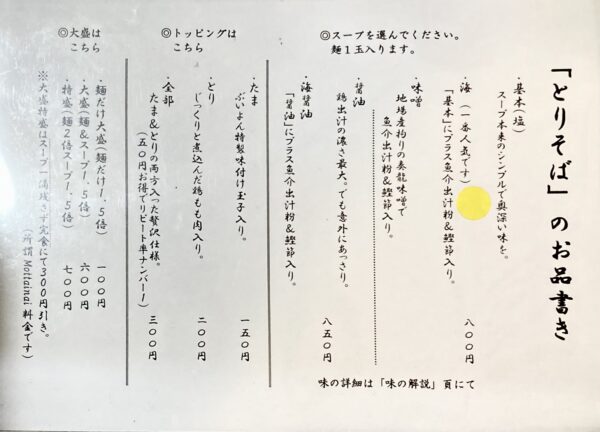 「とりそば」のお品書き
◎スープを選んでください。
麺１玉入ります。
・基本(塩)
スープ本来のシンプルで奥深い味を。
・海（一番人気です）
「基本」にプラス魚介出汁粉&鰹節入り。
八〇〇円
・味噌
地場産拘りの奏龍味噌で
魚介出汁粉&鰹節入り。
・醤油
鶏出汁の濃さ最大。でも意外にあっさり。
・海醤油
「醤油」にプラス魚介出汁粉&鰹節入り。
八五〇円
味の詳細は「味の解説」頁にて
◎トッピングは
こちら
・たま
ぶいよん特製味付け玉子入り。
一五〇円
・とり
じっくりと煮込んだ鶏もも肉入り。
二〇〇円
・全部
たま&とりの両方入った贅沢仕様。
（五〇円お得でリピート率ナンバー１）
三〇〇円
◎大盛は
こちら
・麺だけ大盛（麺だけ１、５倍）
一〇〇円
・大盛（麺&スープ１、５倍）
六〇〇円
・特盛（麺２倍スープ１、５倍）
七〇〇円
※大盛特盛はスープ一滴残さず完食にて３００円引き。
（所謂 Mottainai 料金です）